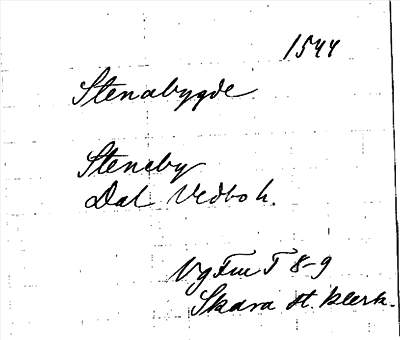 1544
Stenabygde
Steneby
Dal Vedbo h.
Vg Fm T 8-9
Skara st. klerk.